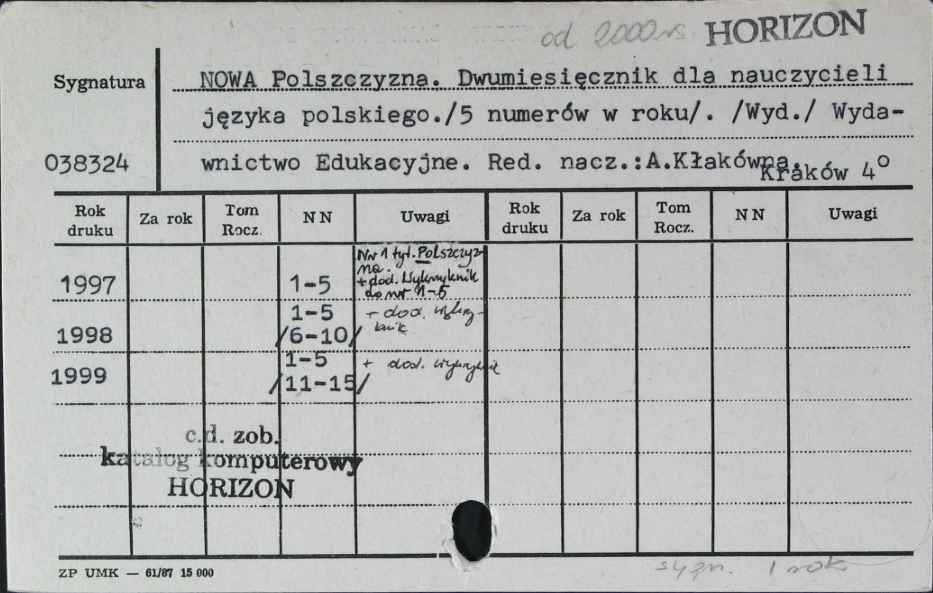 od 2000 HORIZON
Sygnatura
NOWA Polszczyzna. Dwumiesięcznik dla nauczycieli
języka polskiego./5 numerów w roku/. /Wyd./ Wyda-
038324
wnictwo Edukacyjne. Red. nacz.:A.Kłakówna.
Kraków 4°
Rok druku Za rok Tom Rocz. NN Uwagi Rok druku Za rok Tom Rocz. NN Uwagi
Nr 1 tyt. Polszczyz-
na.
+ dod. Wykrzyknik
do nr 1-5
1997 1-5
1-5 + dod. wykrzy-
knik
1998 /6-10/
1-5 + dod. wykrzyknik
1999 /11-15/
c.d. zob.
katalog komputerowy
HORIZON
ZP UMK — 61/87 15 000
sygn. 1 rok